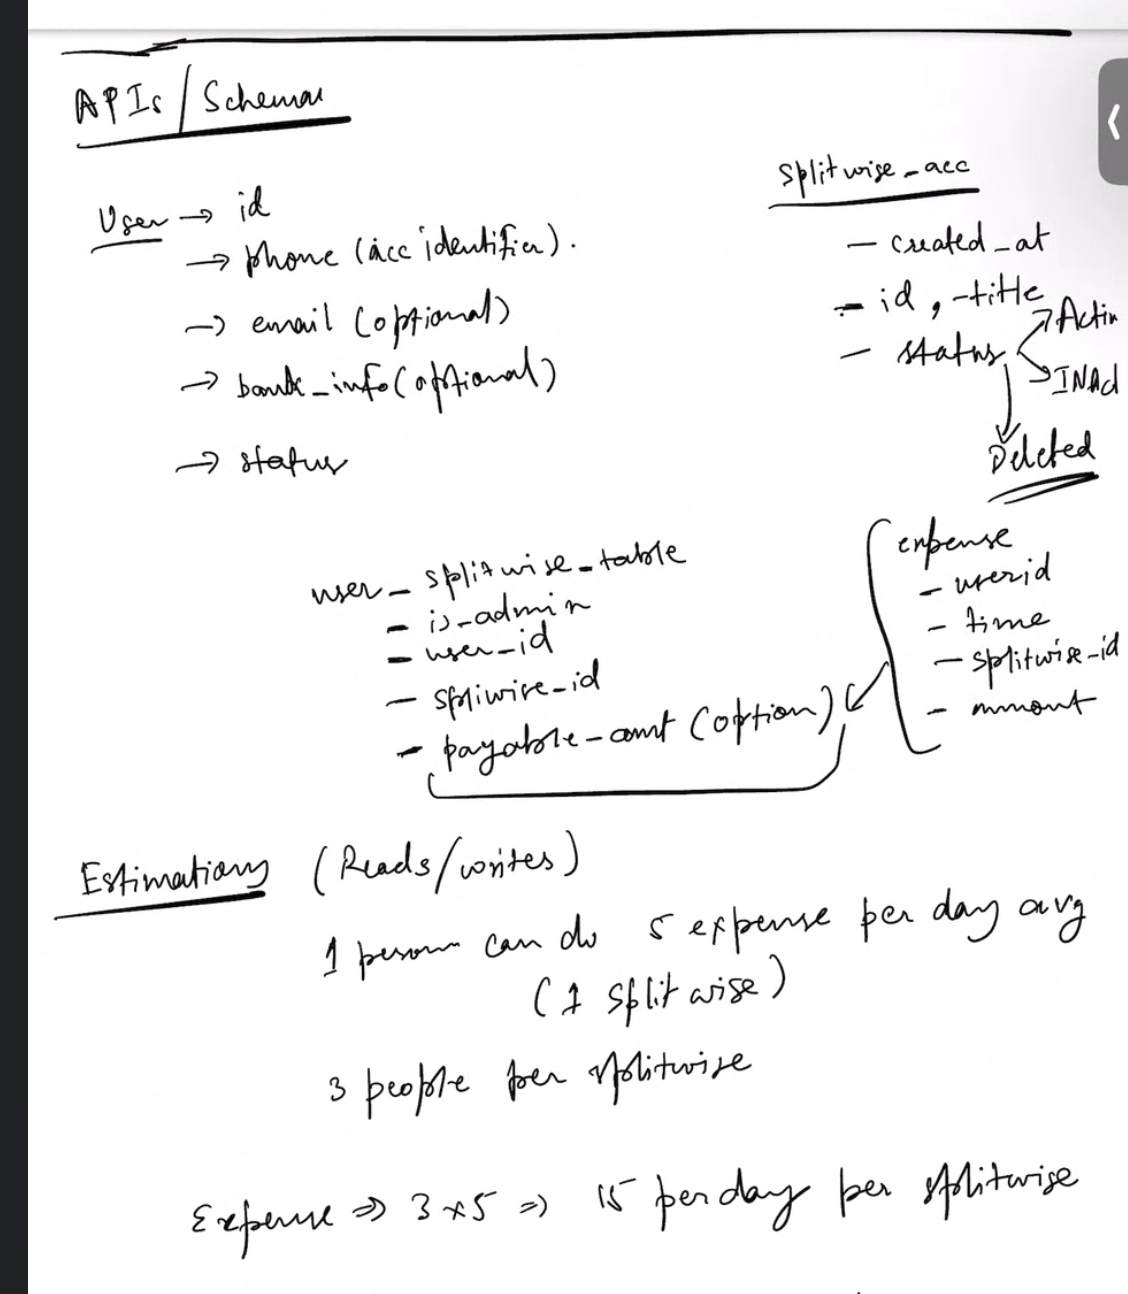 APIs / Schemas
User → id
→ phone (acc identifier).
→ email (optional)
→ bank_info (optional)
→ status
Splitwise_acc
- created_at
- id, -title
- status
Activ
INAct
Deleted
user_splitwise_table
- is_admin
- user_id
- spliwire_id
- payable_amt (option)
expense
- userid
- time
- splitwise_id
- ammount
Estimations (Reads/writes)
1 person can do 5 expense per day avg
(1 splitwise)
3 people per splitwise
Expense ⇒ 3 x 5 ⇒ 15 per day per splitwise